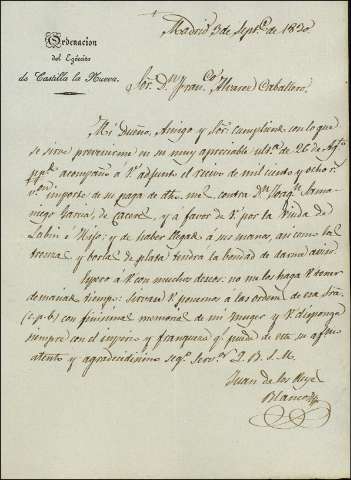 Ordenacion
del Egército
de Castilla la Nueva.
Madrid 3 de Septe. de 1830.
Sor. Dn. Franco. Alvarez Caballero.
Mi Dueño, Amigo y Sor: cumpliendo con lo que
se sirve prevenirme en su muy apreciable ulta. de 26 de Agto.
ppdo. acompaño a V. adjunto el recivo de mil ciento y ocho rs.
von. importe de su paga de dho. mes, contra Dn. Joaqn. Sama-
niego Garcia, de Caceres, y a favor de V. por la Viuda de
Sabin é Hijo: y de haber llegado á sus manos, asi como la
trensa y borla de plata tendra la bondad de darme aviso.
Espero á V. con muchos deseos: no nos los haga V. tener
demasiado tiempo: Sirvase V. ponernos a las ordenes de esa Sra.
(c.p.b.) con finisimas memorias de mi muger y V. disponga
siempre con el imperio y franqueza qe. puede de este su afmo.
atento y agradecidisimo segº. Servor. Q. B. S. M.
Juan de los Reyes
Blanco